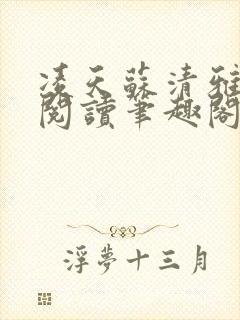 凌天蘇清雅
閱讀筆趣閣
浮夢十三月